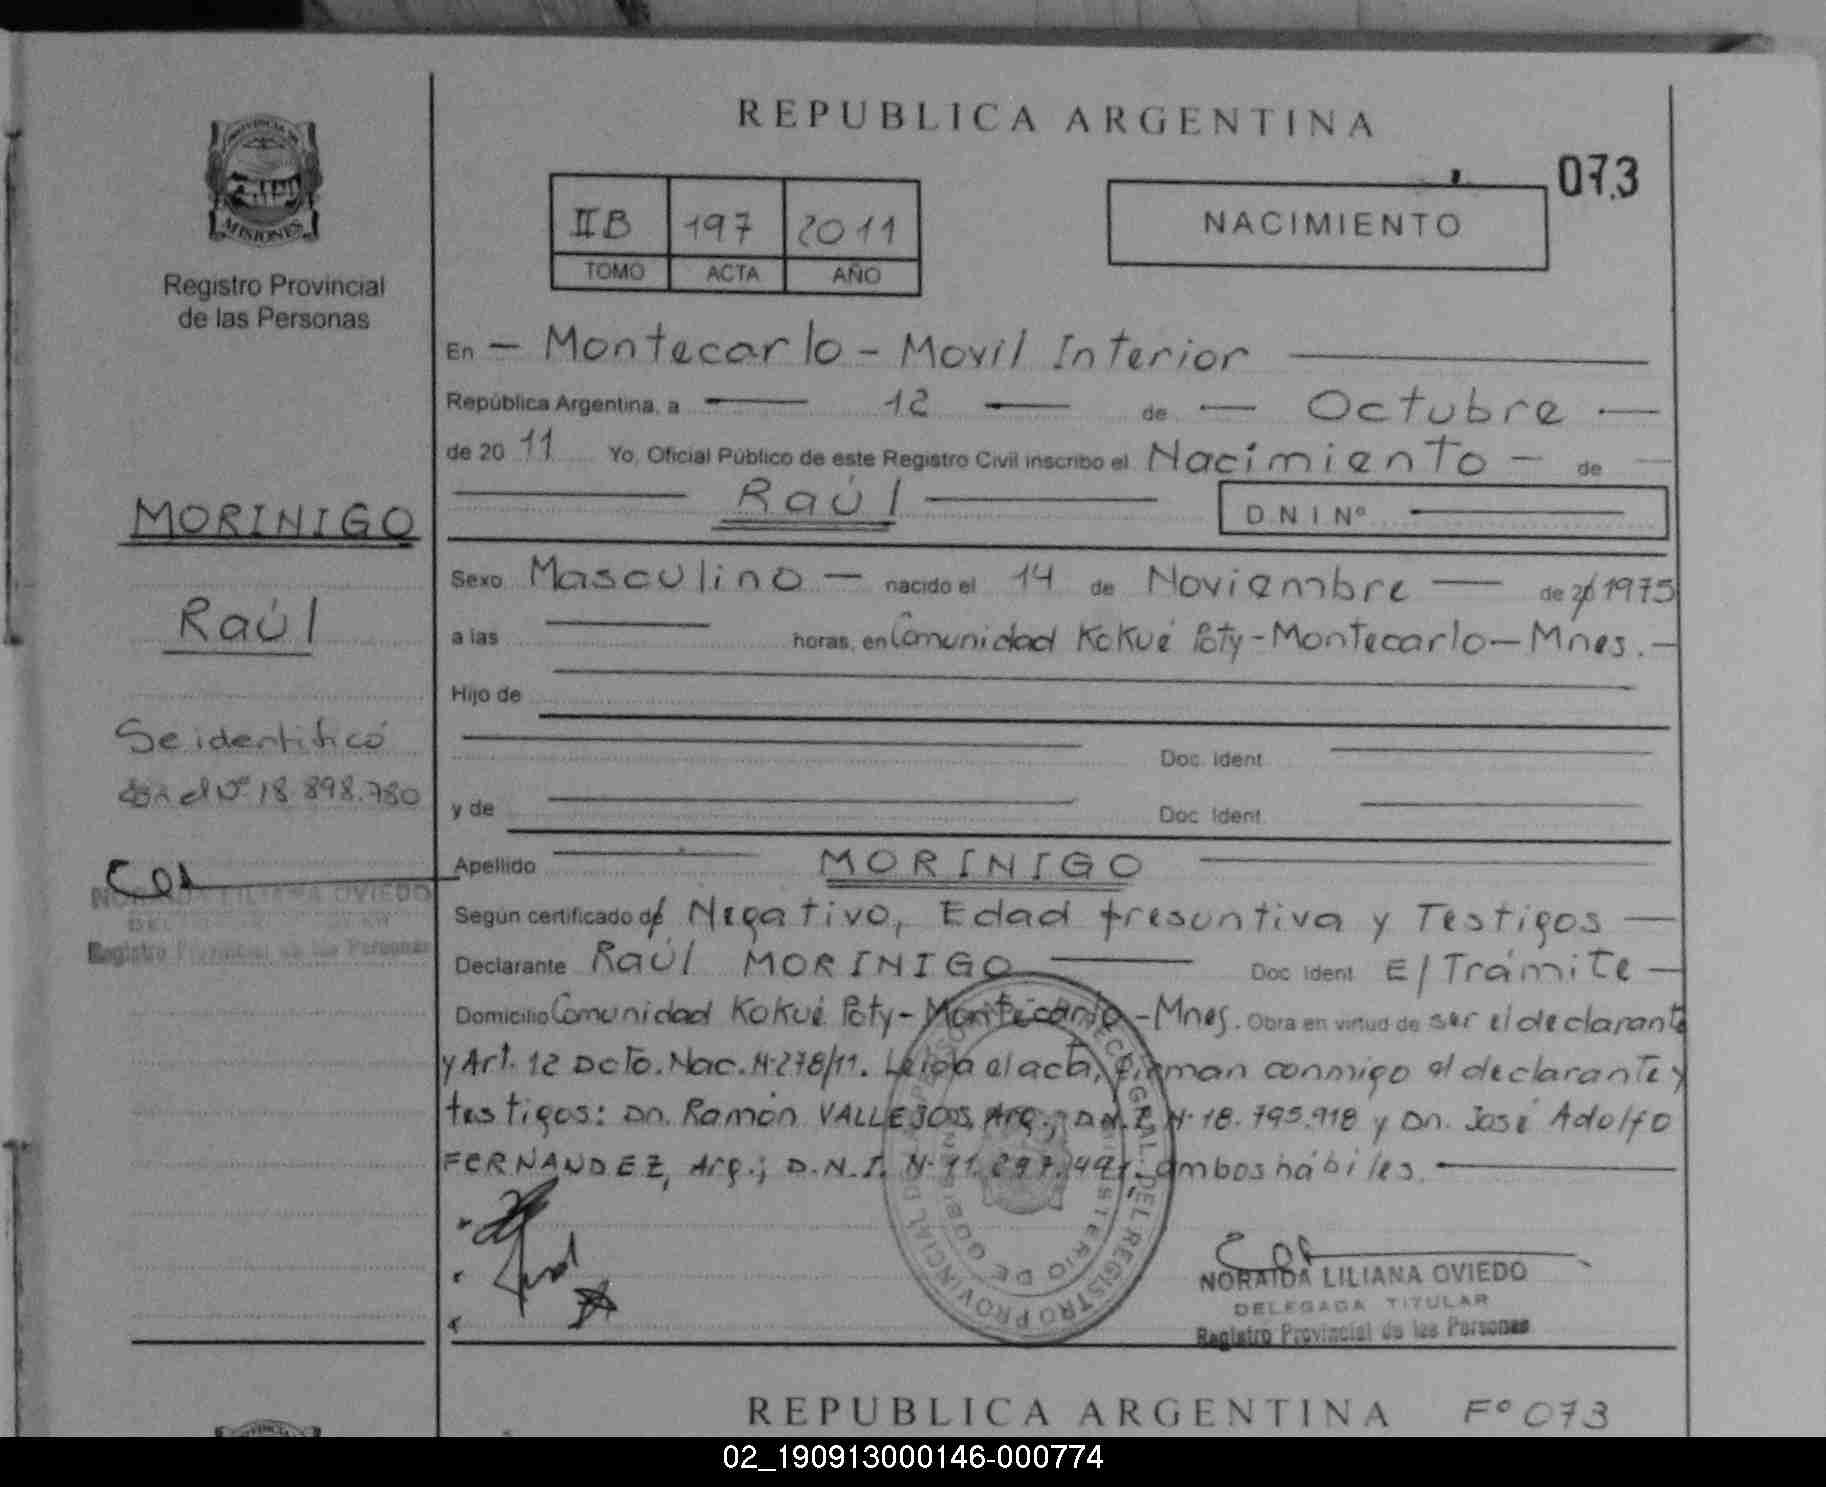 REPUBLICA ARGENTINA
073
PROVINCIA DE
MISIONES
Registro Provincial
de las Personas
IIB 197 2011
TOMO ACTA AÑO
NACIMIENTO
En - Montecarlo - Movil Interior
República Argentina, a 12 de Octubre
de 20 11 Yo, Oficial Público de este Registro Civil inscribo el Nacimiento - de
Raúl
D N I Nº
MORINIGO
Raúl
Se identificó
con el Nº 18.898.780
NORAIDA LILIANA OVIEDO
Registro Provincial de las Personas
Sexo Masculino - nacido el 14 de Noviembre de 20 1975
a las horas, en Comunidad Kokué Poty - Montecarlo - Mnes. -
Hijo de
Doc. Ident.
y de Doc. Ident.
Apellido MORINIGO
Según certificado de Negativo, Edad presuntiva y Testigos
Declarante Raúl MORINIGO Doc. Ident. E/Trámite
Domicilio Comunidad Kokué Poty - Montecarlo - Mnes. Obra en virtud de ser el declarante
y Art. 12 Dcto. Nac. Nº 278/11. Leída el acta, firman conmigo el declarante y
testigos: Dn. Ramón VALLEJOS, Arg.; D.N.I. Nº 18.795.918 y Dn. José Adolfo
FERNANDEZ, Arg.; D.N.I. Nº 11.297.491; ambos hábiles.
NORAIDA LILIANA OVIEDO
DELEGADA TITULAR
Registro Provincial de las Personas
REPUBLICA ARGENTINA Fº 073
02_190913000146-000774